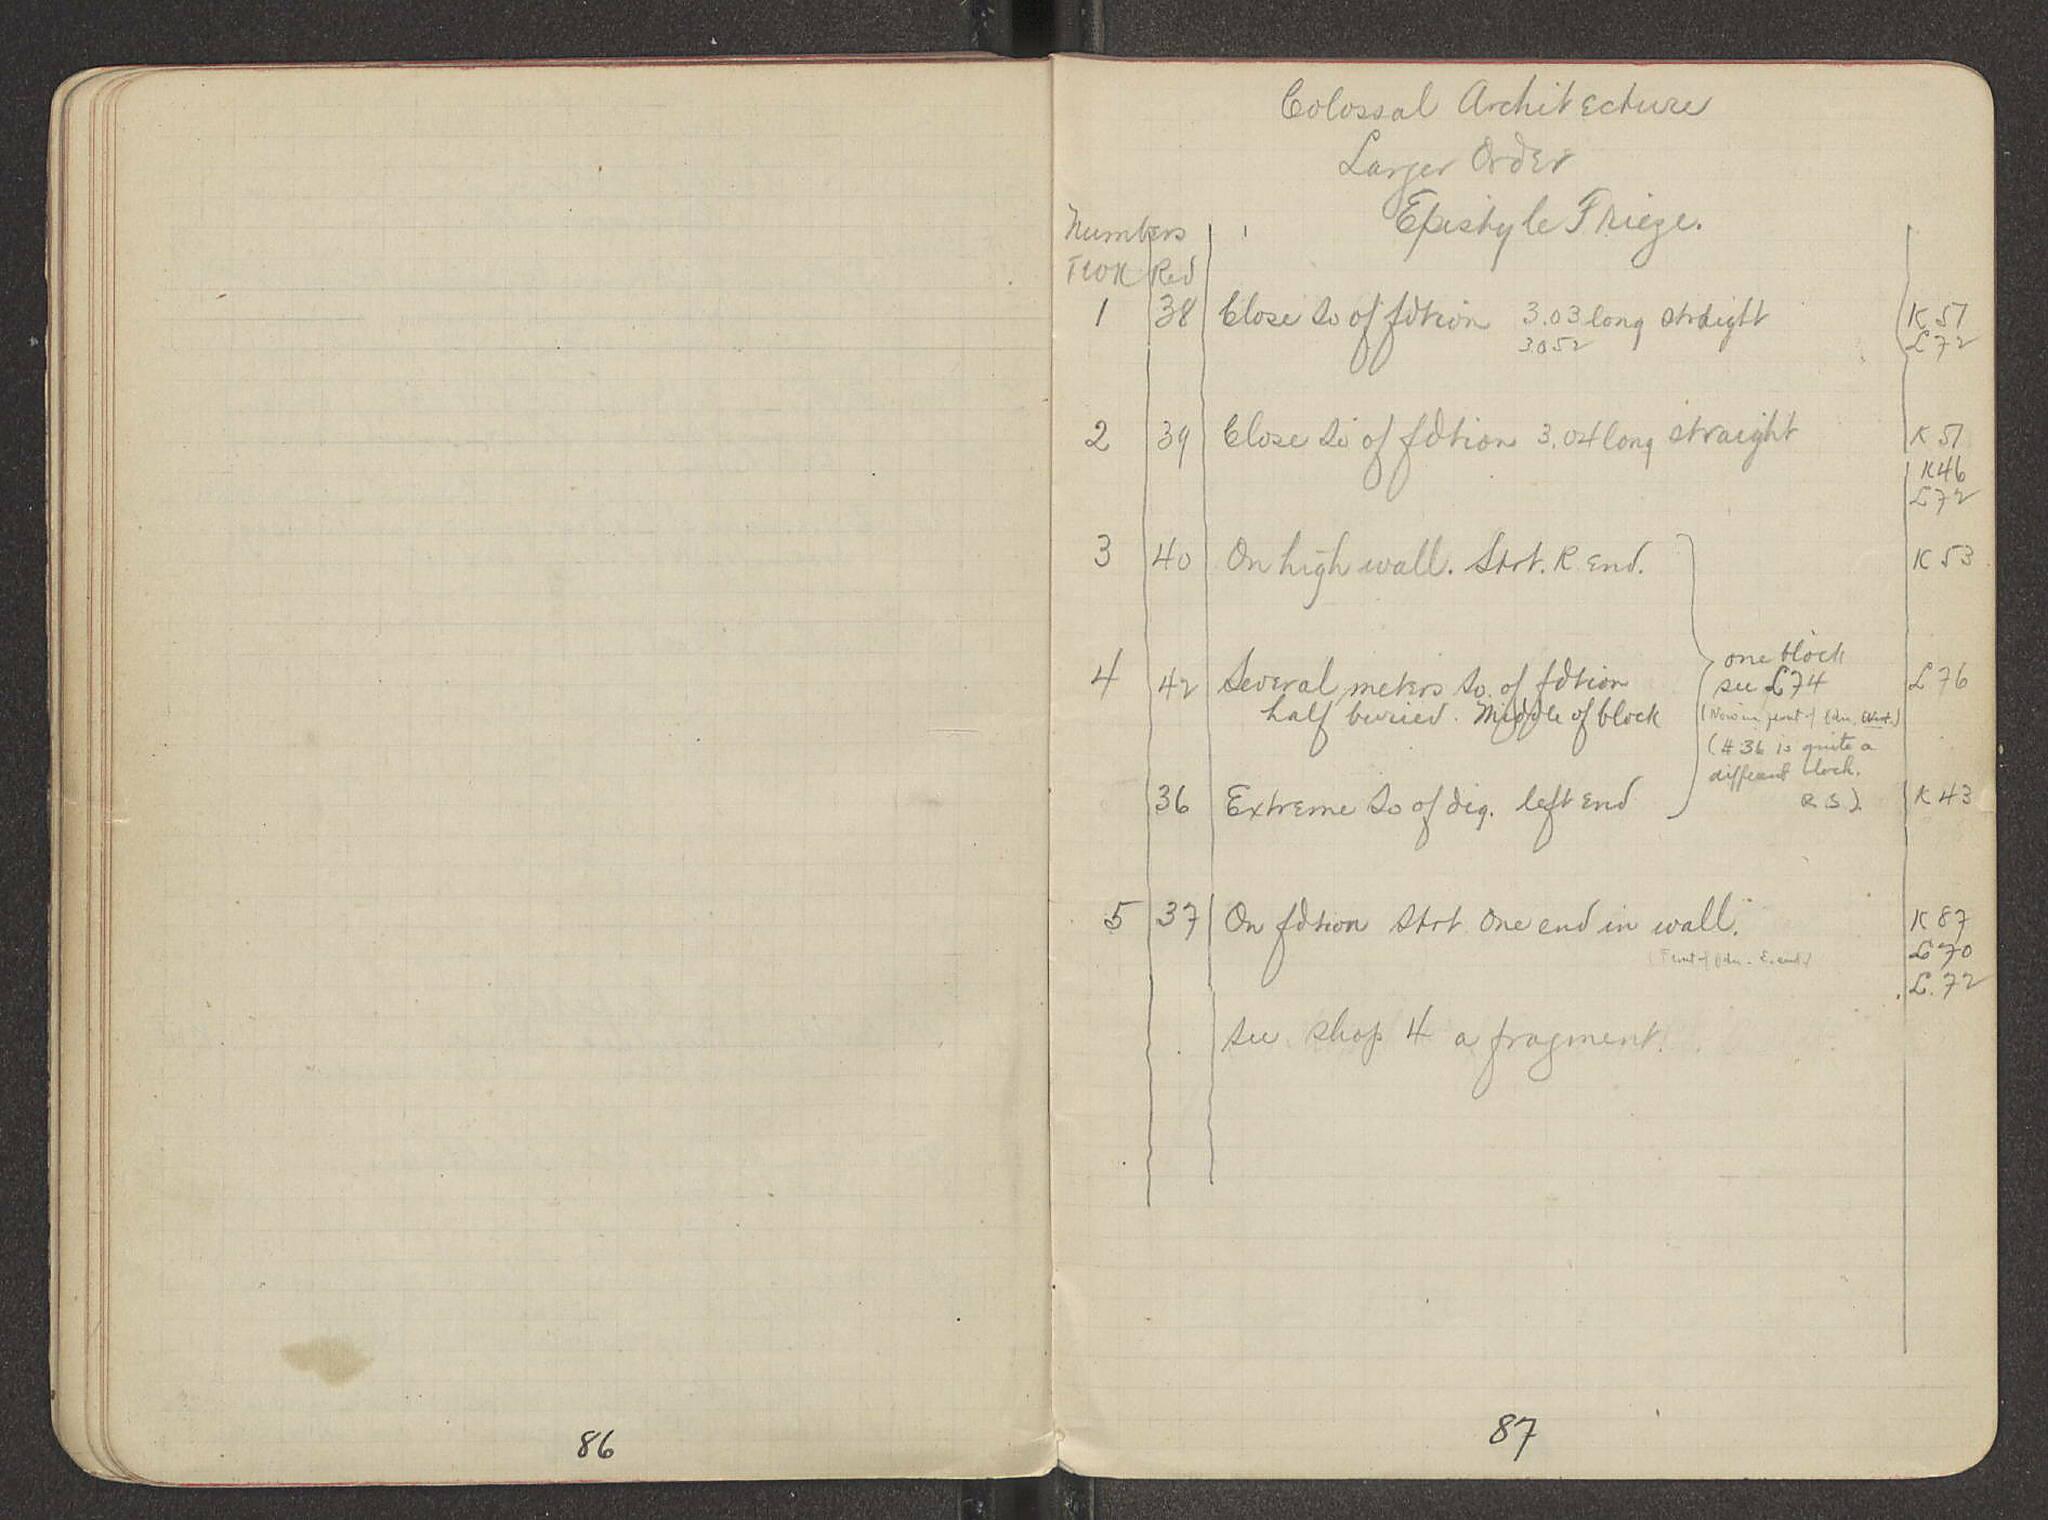 Colossal Architecture
Larger Order
Epistyle Frieze.
Numbers
Red
1 38 Close So of fdtion 3.03 long straight K 51
3.052 L 72
2 39 Close So of fdtion 3.04 long straight K 51
K46
L 72
3 40 On high wall. Strt. R end. K 53
one block
4 42 Several meters So. of fdtion see L 74 L 76
half buried. Middle of block (Now in front of fdn. West.)
(# 36 is quite a
different block.
36 Extreme So of dig. left end R S). K 43
5 37 On fdtion Strt One end in wall. K 87
(Front of fdn. E. end) L 70
L. 72
see shop 4 a fragment.
86
87